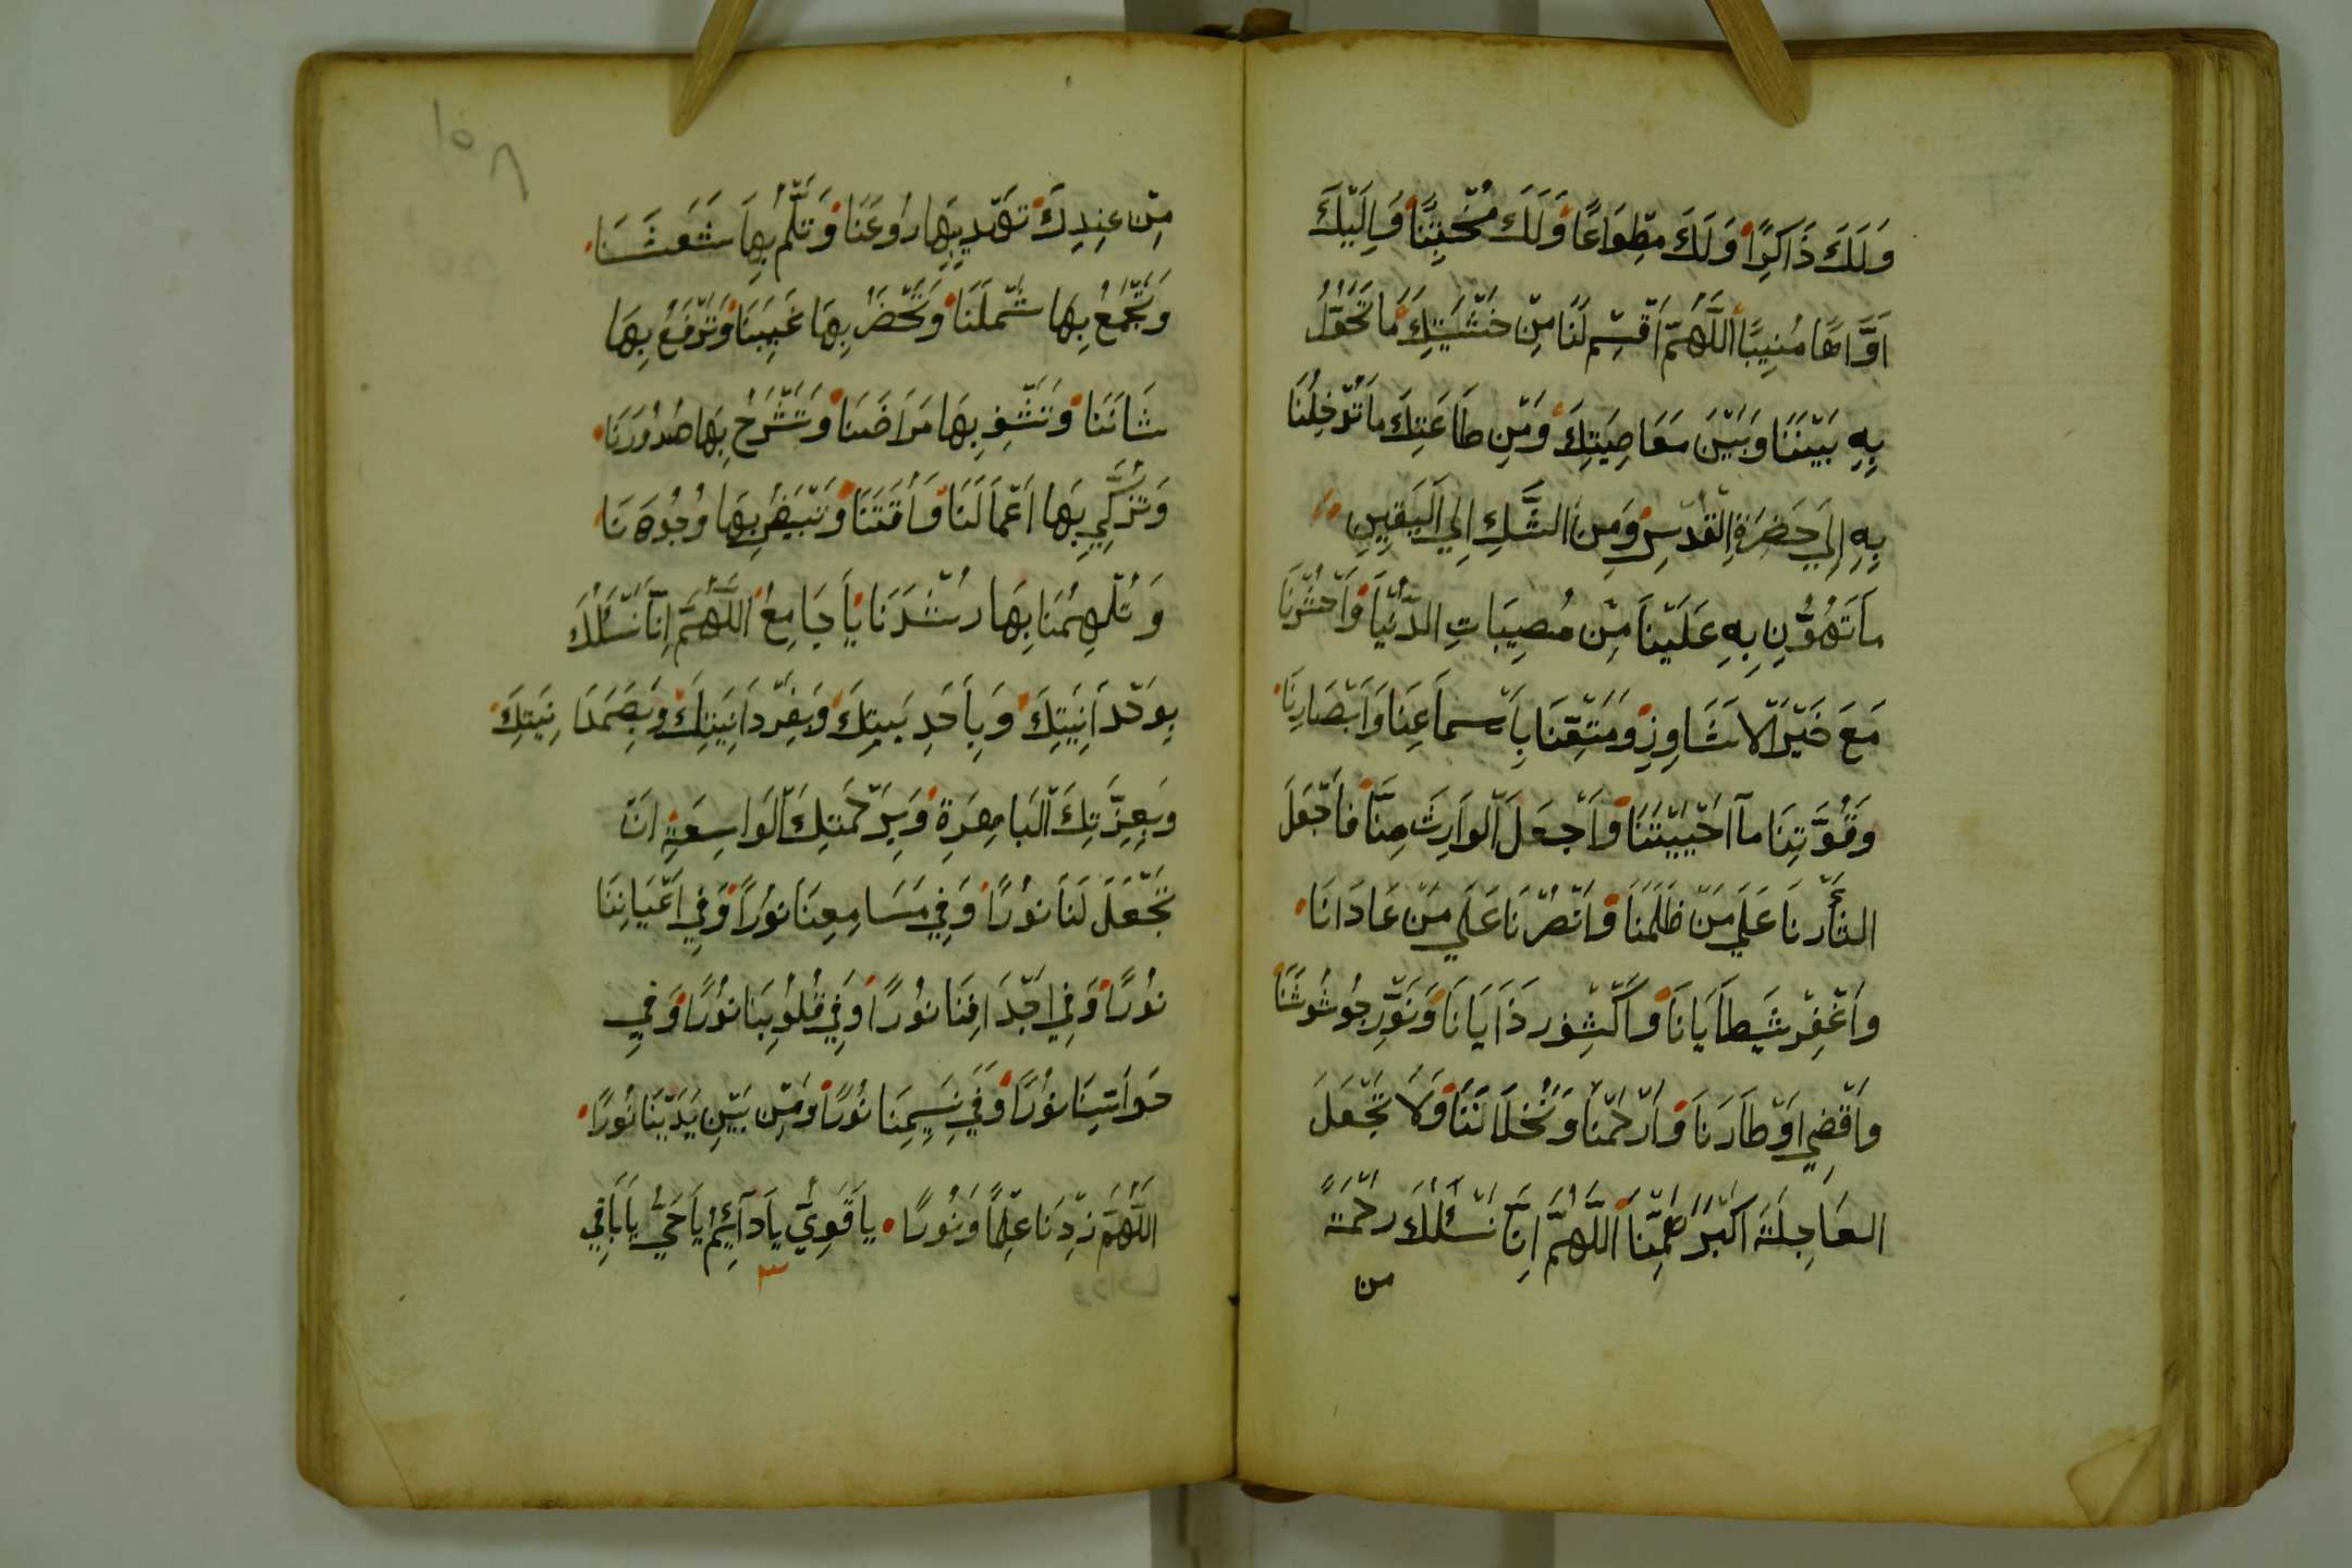 وَلَكَ ذَاكِرًا وَلَكَ مِطْوَاعًا وَلَكَ مُخْبِتًا وَإِلَيْكَ
أَوَّاهًا مُنِيبًا اللَّهُمَّ اقْسِمْ لَنَا مِنْ خَشْيَتِكَ مَا تَحُوْلُ
بِهِ بَيْنَنَا وَبَيْنَ مَعَاصِيَتِكَ وَمِنْ طَاعَتِكَ مَا تُدْخِلُنَا
بِهِ إِلَي حَضْرَةِ الْقُدْسِ وَمِنَ الشَّكِ إِلَي الْيَقِينِ
مَا تُهَوِّنُ بِهِ عَلَيْنَا مِنْ مُصِيبَاتِ الدُّنْيَا وَاحْشُرْنَا
مَعَ خَيْرِ الْا وَمَتِّعْنَا بِأَسْمَاعِنَا وَأَبْصَارِنَا
وَقُوَّتِنَا مَآ أَحْيَيْتَنَا وَاجْعَلَ الْوَارِثَ مِنَّا فَاجْعَلْ
عَلَي مَنْ ظَلَمَنَا وَانْصُرْنَا عَلَي مَنْ عَادَانَا
وَاغْفِرْ وَنَوِّرْ
وَاقْضِي أَوْطَارَنَا وَارْحَمْنَا وَلَا تَجْعَلَ
العَاجِلَةَ أَكْبَرَ هَمِّنَا اللَّهُمَّ إِنَّا نَسْئَلُكَ رَحْمَةً
من
مِنْ عِنْدِكَ تَهْدِي بِهَا رُوعَنَا وَتَلُمُّ بِهَا شَعَثَنَا
وَتَجْمَعُ بِهَا شَمْلَنَا وَتَحْضَرُ بِهَا غَيِبَنَا وَتَرْفَعُ بِهَا
شَانَنَا وَتَشْفِ بِهَا مَرَاضَنَا وَتَشْرَحُ بِهَا صُدُورَنَا
وَتُزَكِّي بِهَا أَعْمَالَنَا وَتُبَيِّضُ بِهَا وُجُوهَنَا
وَتُلْهِمُنَا بِهَا رُشْدَنَا يَا جَامِعُ اللَّهُمَّ إِنَّا نَسْئَلُكَ
بِوَحْدَانِيَتِكَ وَبِأَحَدِيَتِكَ وَبِفَرْدَانِيَتِكَ وَبِصَمَدَانِيَتِكَ
وَبِعِزَّتِكَ الْبَاهِرَةِ وَبِرَحْمَتِكَ الْوَاسِعَةِ أَنْ
تَجْعَلَ لَنَا نُورًا وَفِي مَسَامِعِنَا نُورًا وَفِي أَعْيَانِنَا
نُورًا وَفِي أَجْدَافِنَا نُورًا وَفِي قُلُوبِنَا نُورًا وَفِي
حَوَاسِّنَا نُورًا وَفِي نُورًا وَمِنْ بَيْنِ يَدَيْنَا نُورًا
اللَّهُمَّ زِدْنَا عِلْمًا وَنُورًا يَا قَوِيُّ يَا دَآئِمُ يَا حَيُّ يَا بَاقِي
٣